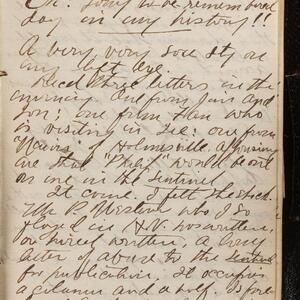 Oh. Long to be remembered
day in my history!!
A very, very sore Sty on
my left eye.
Recd three letters in the
morning. One from Jim and
Lon; one from Han who
is visiting in Lee: one from
"Naomi" of Holmesville, advising
me that "Philip" would be out
on me in the Sentinel
It came. I felt the shock.
Mr P. Weston who I so
in H.V. has written,
or hired written, a long
letter of abuse to the Sentinel
for publication. It occupies
a column and a half. Is fore